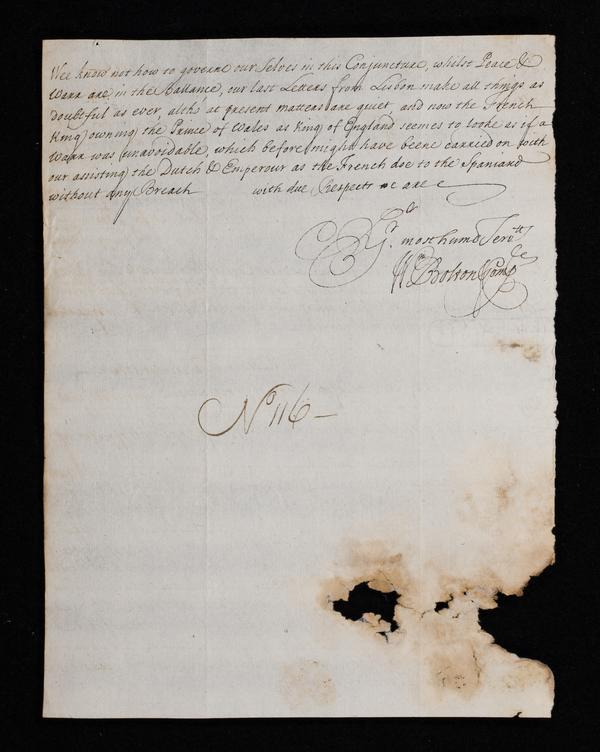 Wee know not how to governe our Selves in this Conjuncture, whilst Peace &
Warr are in the Ballance, our last Letters from Lisbon make all things as
doubtful as ever, altho' at present matters are quiet, and now the French
King owning the Prince of Wales as King of England seemes to looke as if a
Warr was unavoidable, which before might have beene carried on forth
our assisting the Dutch & Emperour as the French doe to the Spaniard
without any Breach with due Respects wc are
Yr. most humb Servts
Wm Bolton Compa
No 116